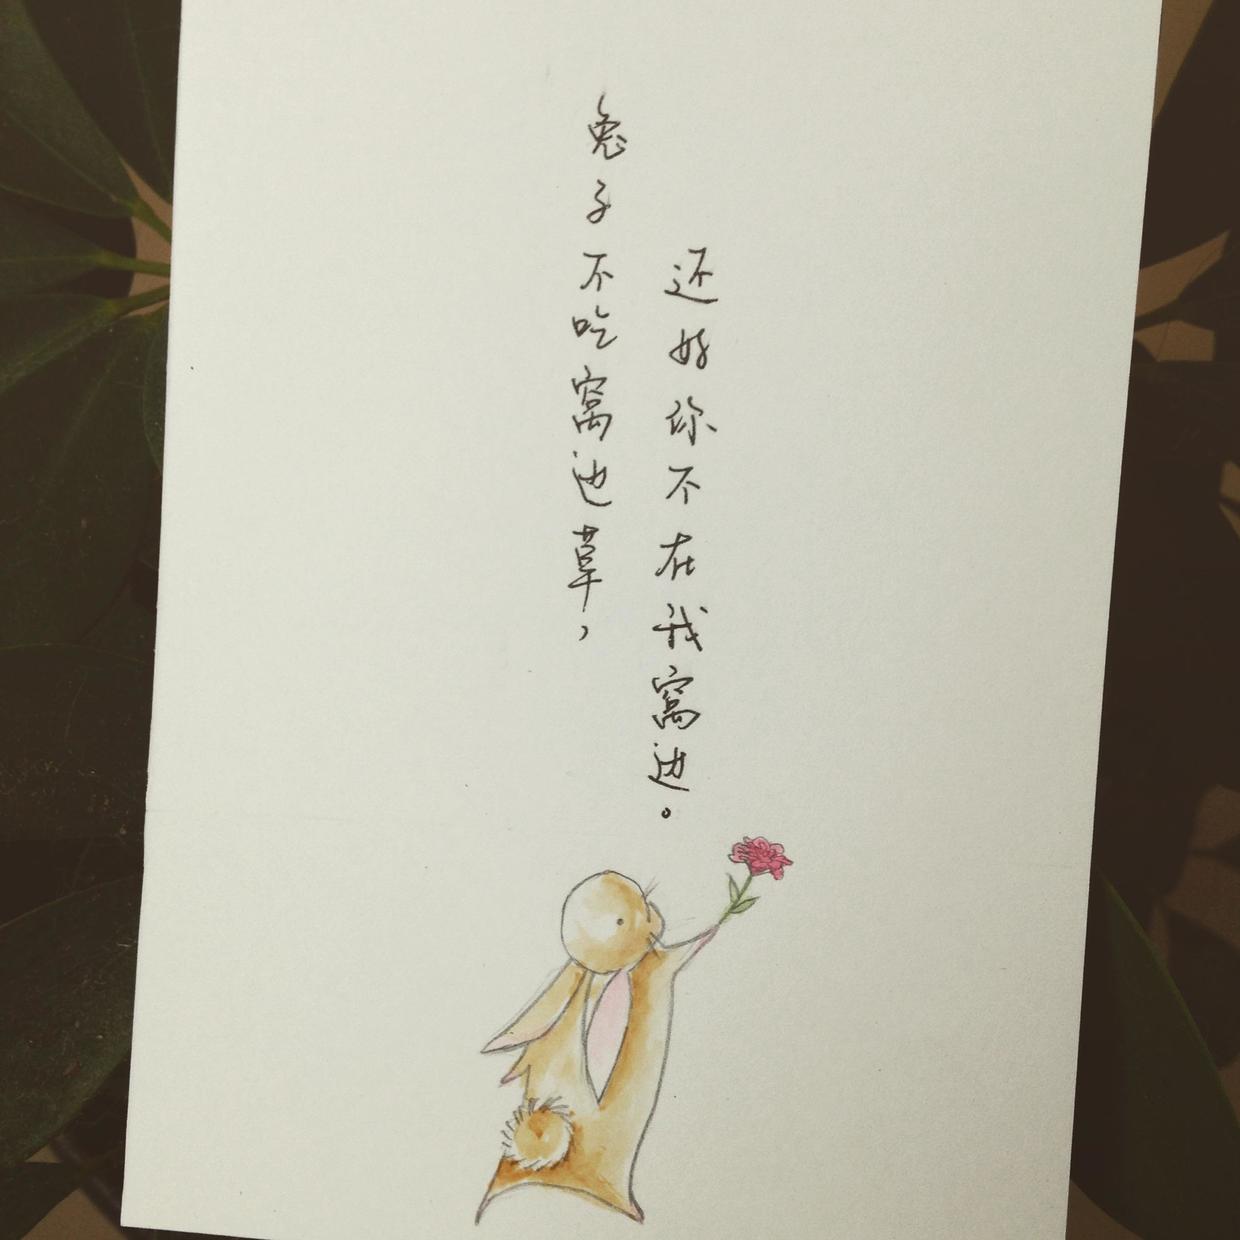 兔子不吃窝边草，
还好你不在我窝边。